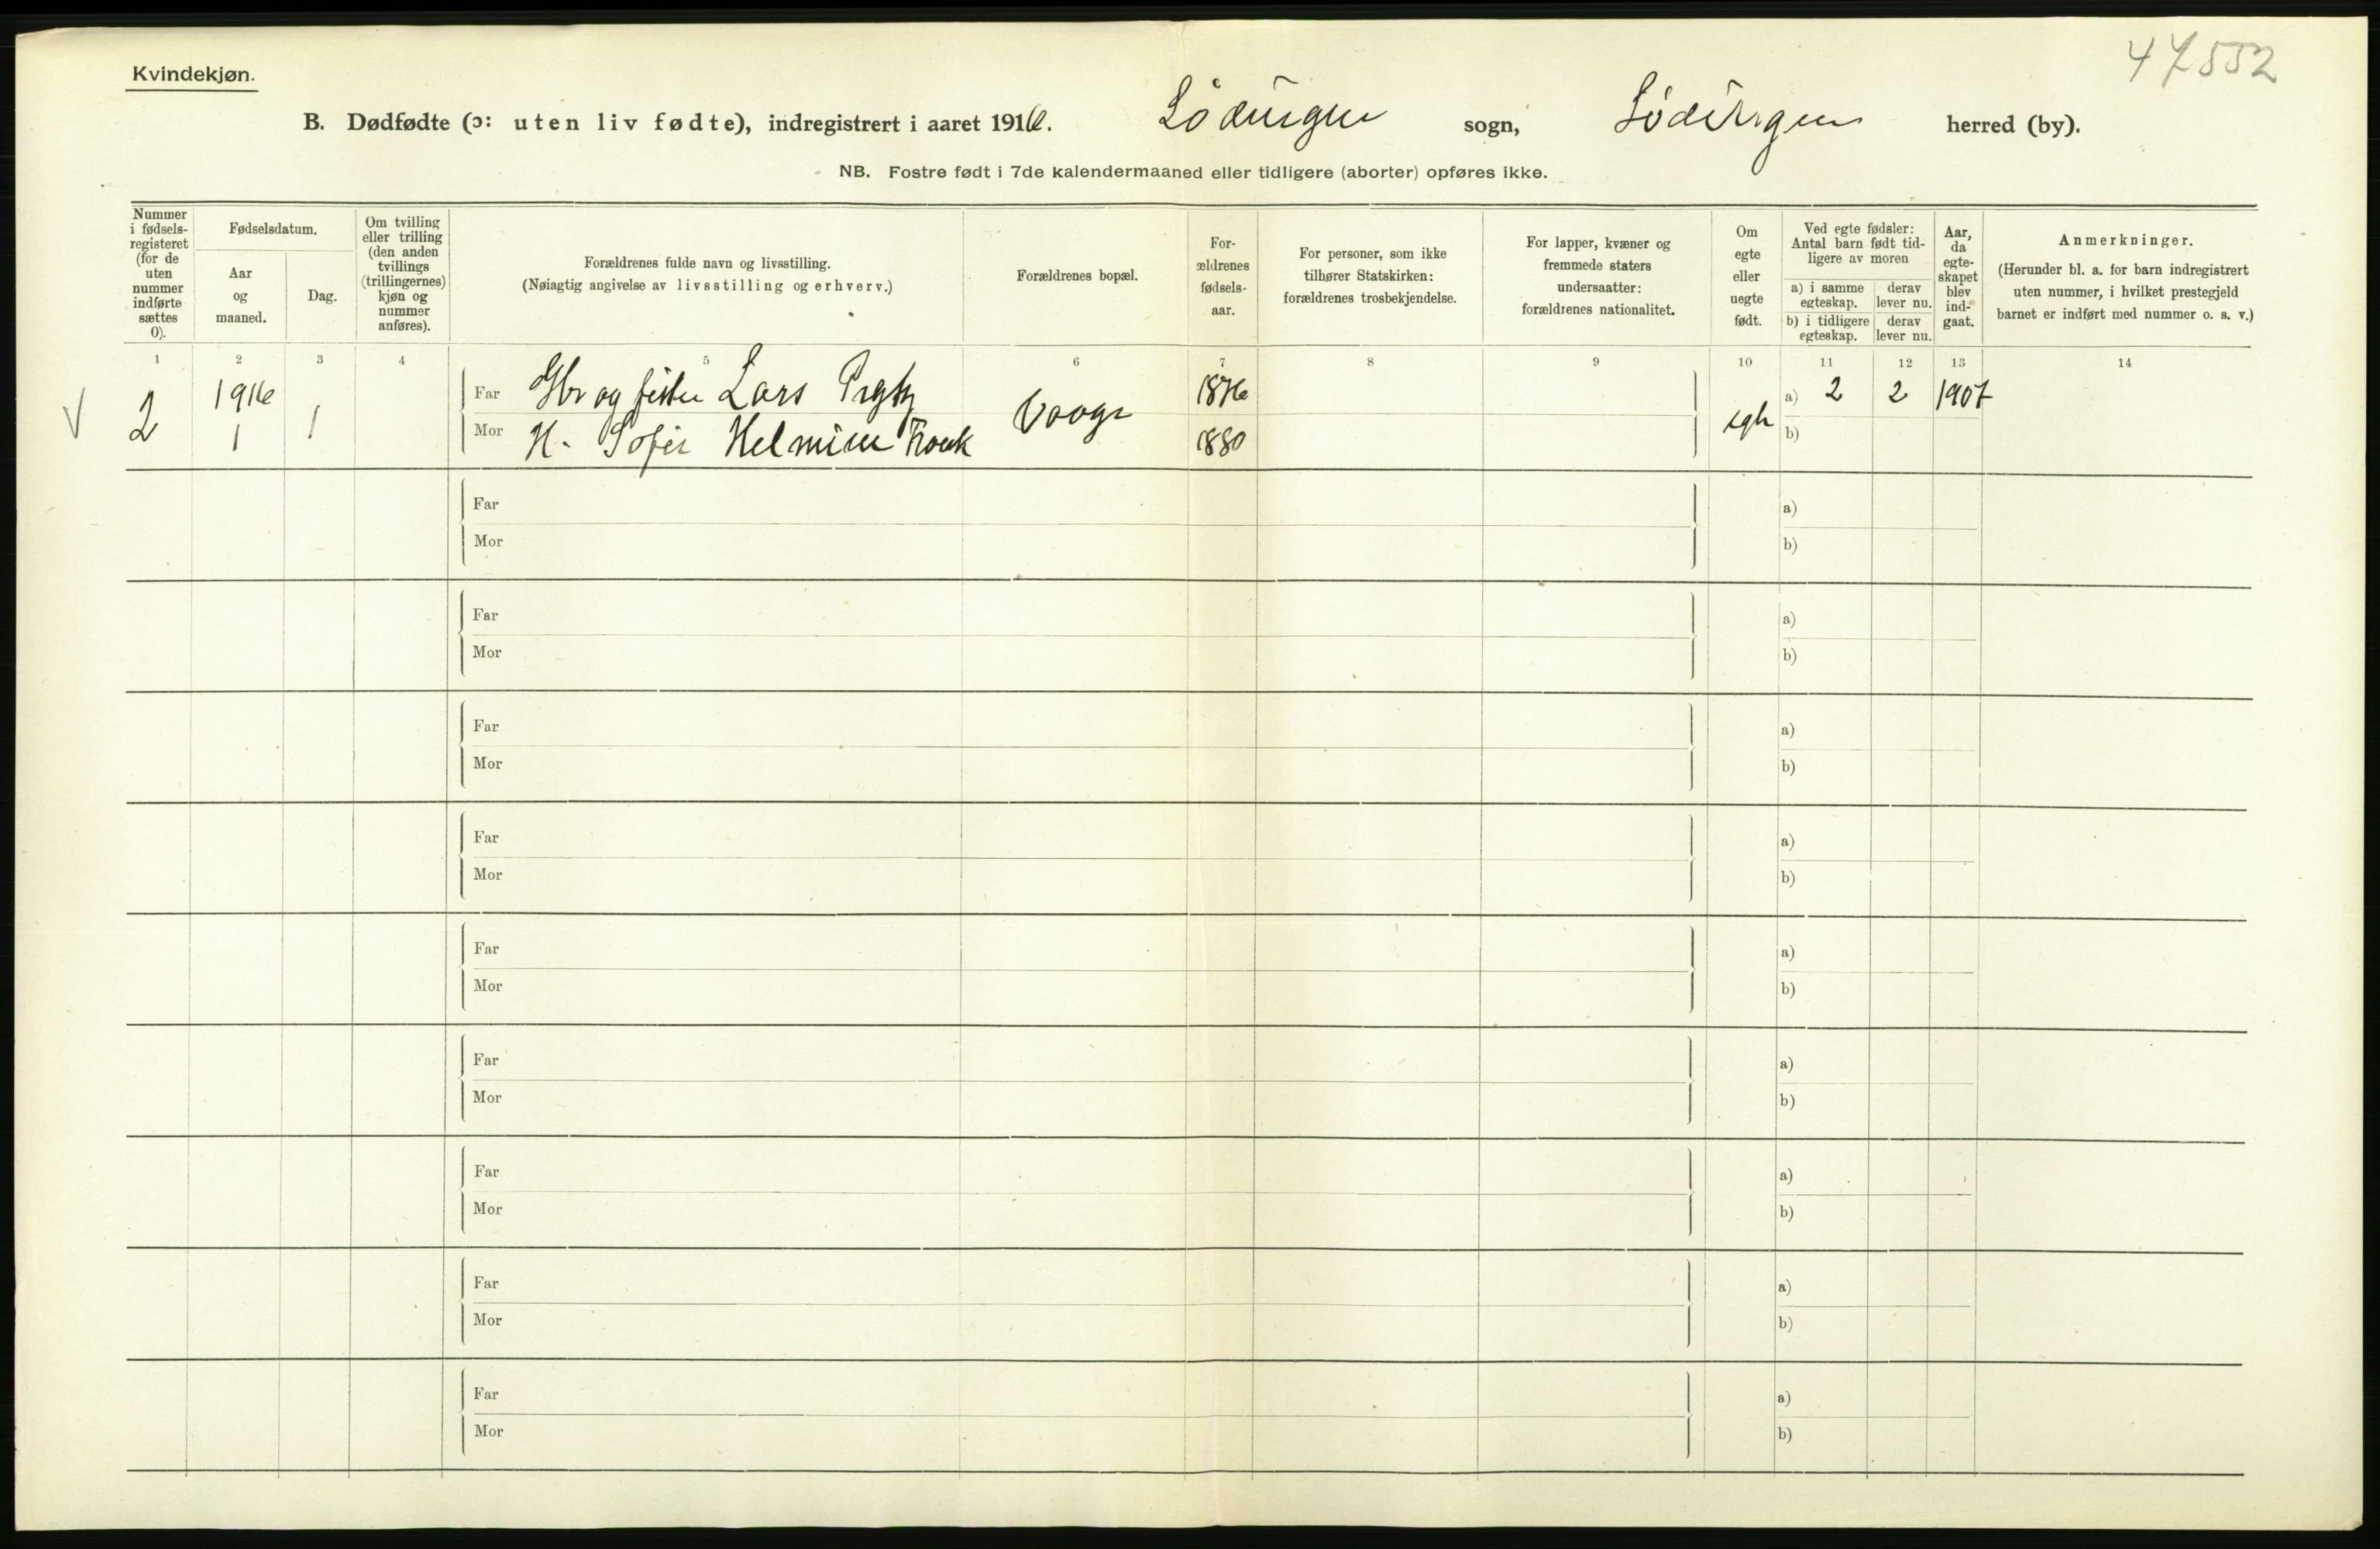 47552
Kvindekjøn.
B. Dødfødte (ɔ: uten liv fødte), indregistrert i aaret 1916. Lödingen sogn, Lödingen herred (by).
NB. Fostre født i 7de kalendermaaned eller tidligere (aborter) opføres ikke.
Nummer i fødsels-registeret (for de uten nummer indførte sættes 0).
Fødselsdatum.
Aar og maaned.
Dag.
Om tvilling eller trilling (den anden tvillings (trillingernes) kjøn og nummer anføres).
Forældrenes fulde navn og livsstilling.
(Nøiagtig angivelse av livsstilling og erhverv.)
Forældrenes bopæl.
For-ældrenes fødsels-aar.
For personer, som ikke tilhører Statskirken: forældrenes trosbekjendelse.
For lapper, kvæner og fremmede staters undersaatter: forældrenes nationalitet.
Om egte eller uegte født.
Ved egte fødsler: Antal barn født tid-ligere av moren
a) i samme egteskap.
derav lever nu.
b) i tidligere egteskap.
derav lever nu.
Aar, da egte-skapet blev ind-gaat.
Anmerkninger.
(Herunder bl. a. for barn indregistrert uten nummer, i hvilket prestegjeld barnet er indført med nummer o. s. v.)
1 2 3 4 5 6 7 8 9 10 11 12 13 14
V 2 1916 1 1
Far Gbr og fisker Lars 1876 a) 2 2 1907
Mor H. Sofie Helmine 1880 b)
Far a)
Mor b)
Far a)
Mor b)
Far a)
Mor b)
Far a)
Mor b)
Far a)
Mor b)
Far a)
Mor b)
Far a)
Mor b)
Far a)
Mor b)
Far a)
Mor b)